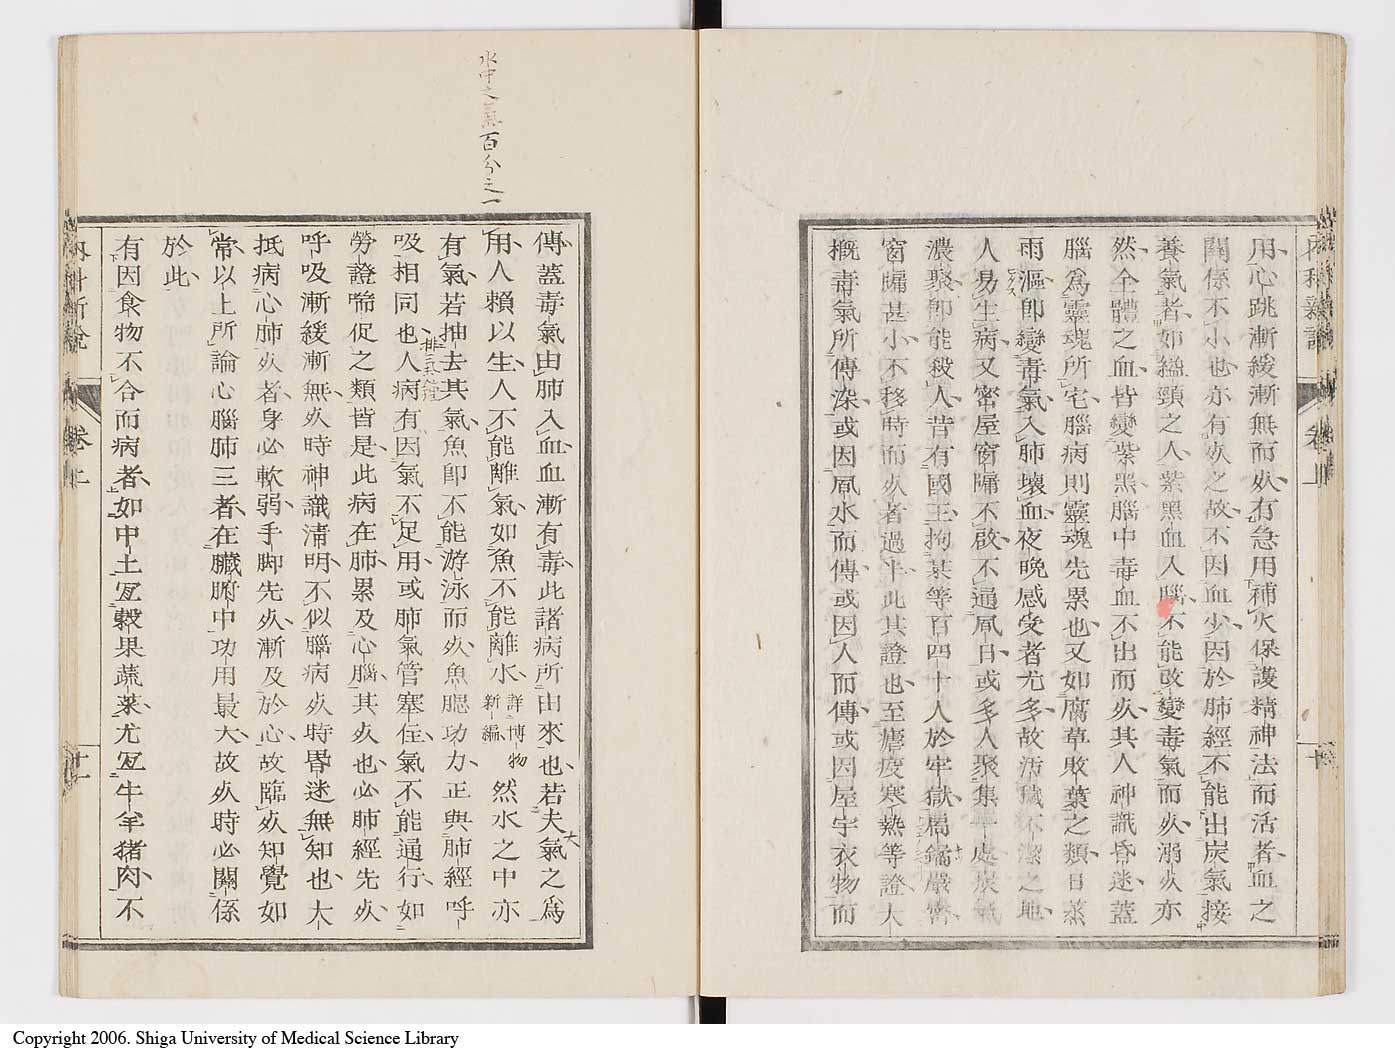 用心跳漸緩漸無而死有急用補火保護精神法而活者血之
關係不小也亦有死之故不因血少因於肺經不能出炭氣接
養氣者如縊頸之人紫黑血入腦不能改變毒氣而死溺死亦
然全體之血皆變紫黑腦中毒血不出而死其人神識昏迷蓋
腦爲靈魂所宅腦病則靈魂先累也又如腐草敗葉之類日蒸
雨漚卽變毒氣入肺壞血夜晚感受者尤多故汚穢不潔之地
人易生病又密屋窗牖不啟不通風日或多人聚集一處炭氣
濃聚卽能殺人昔有國王拘某等百四十人於牢獄扃鐍嚴密
窗牖甚小不移時而死者過半此其證也至瘧疫寒熱等證大
概毒氣所傳深或因風水而傳或因人而傳或因屋宇衣物而
內科新說
卷上
十
水中之氣百分之一
傳蓋毒氣由肺入血血漸有毒此諸病所由來也若夫氣之爲
用人賴以生人不能離氣如魚不能離水詳博物新編然水之中亦
有氣若抽去其氣魚卽不能游泳而死魚腮功力正與肺經呼
吸相同也人病有因氣不足用或肺氣管塞住氣不能通行如
勞證喘促之類皆是此病在肺累及心腦其死也必肺經先死
呼吸漸緩漸無死時神識淸明不似腦病死時昬迷無知也大
抵病心肺死者身必軟弱手脚先死漸及於心故臨死知覺如
常以上所論心腦肺三者在臟腑中功用最大故死時必關係
於此
有因食物不合而病者如中土宜穀果蔬菜尤宜牛羊猪肉不
內科新說
卷上
十一
Copyright 2006. Shiga University of Medical Science Library